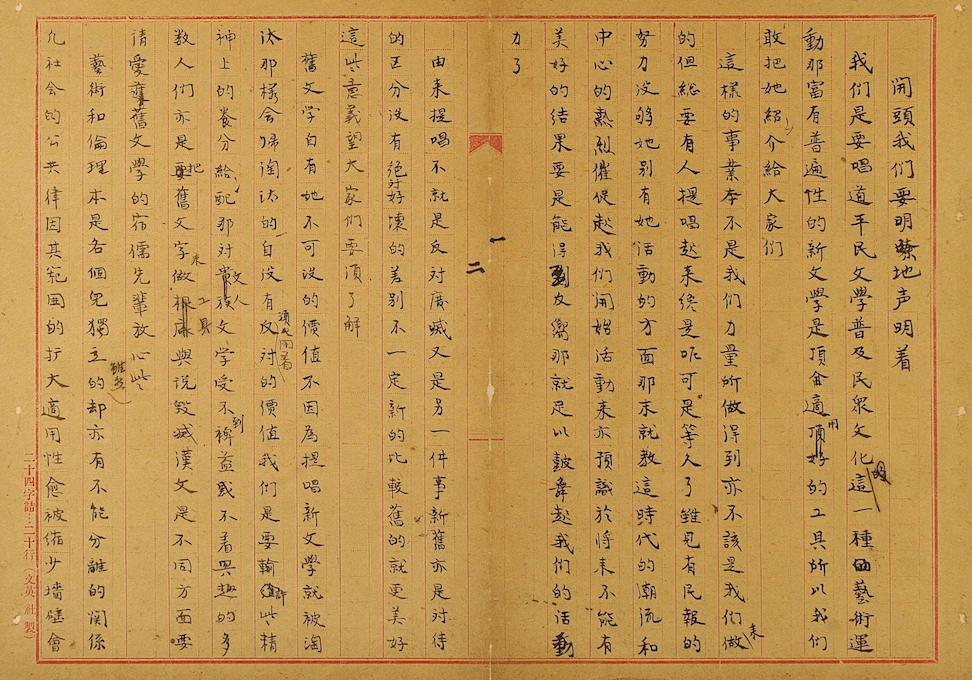 開頭我們要明地声明着
我們是要唱道平民文學普及民眾文化這一種的藝術運
動那富有普遍性的新文學是頂合適用的工具所以我們
敢把她紹介給大家們
這樣的事業本不是我們力量所做得到亦不該是我們做來
的但總要有人提唱起来纔是呢可是等人了雖見有民報的
努力沒够她別有她活動的方面那末就教這時代的潮流和
中心的熱烈催促起我們開始活動来亦預識於將来不能有
美好的結果要是能得到反響那就足以鼓舞起我們的活動
力了
一
二
由来提唱不就是反対廃滅又是另一件事新舊亦是对待
的区分没有絕対好壞的差别不一定新的比較舊的就更美好
這些意義望大家們要須了解
舊文學自有她不可没的價值不因為提唱新文學就被淘
汰那様会帰淘汰的自没有反対的價值我們是要輸些精
神上的養分給配那对文人文學受不到裨益或不着興趣的多
数人們亦是把舊文字做来工具與説毀滅漢文是不同方面要
請愛舊文學的宿儒先輩放心些
藝術和倫理本是各個兒獨立的雖然却亦有不能分離的関係
凢社会的公共律因其範囲的扩大適用性愈被縮少墻壁會
二十四字詰二十行(文英社製)